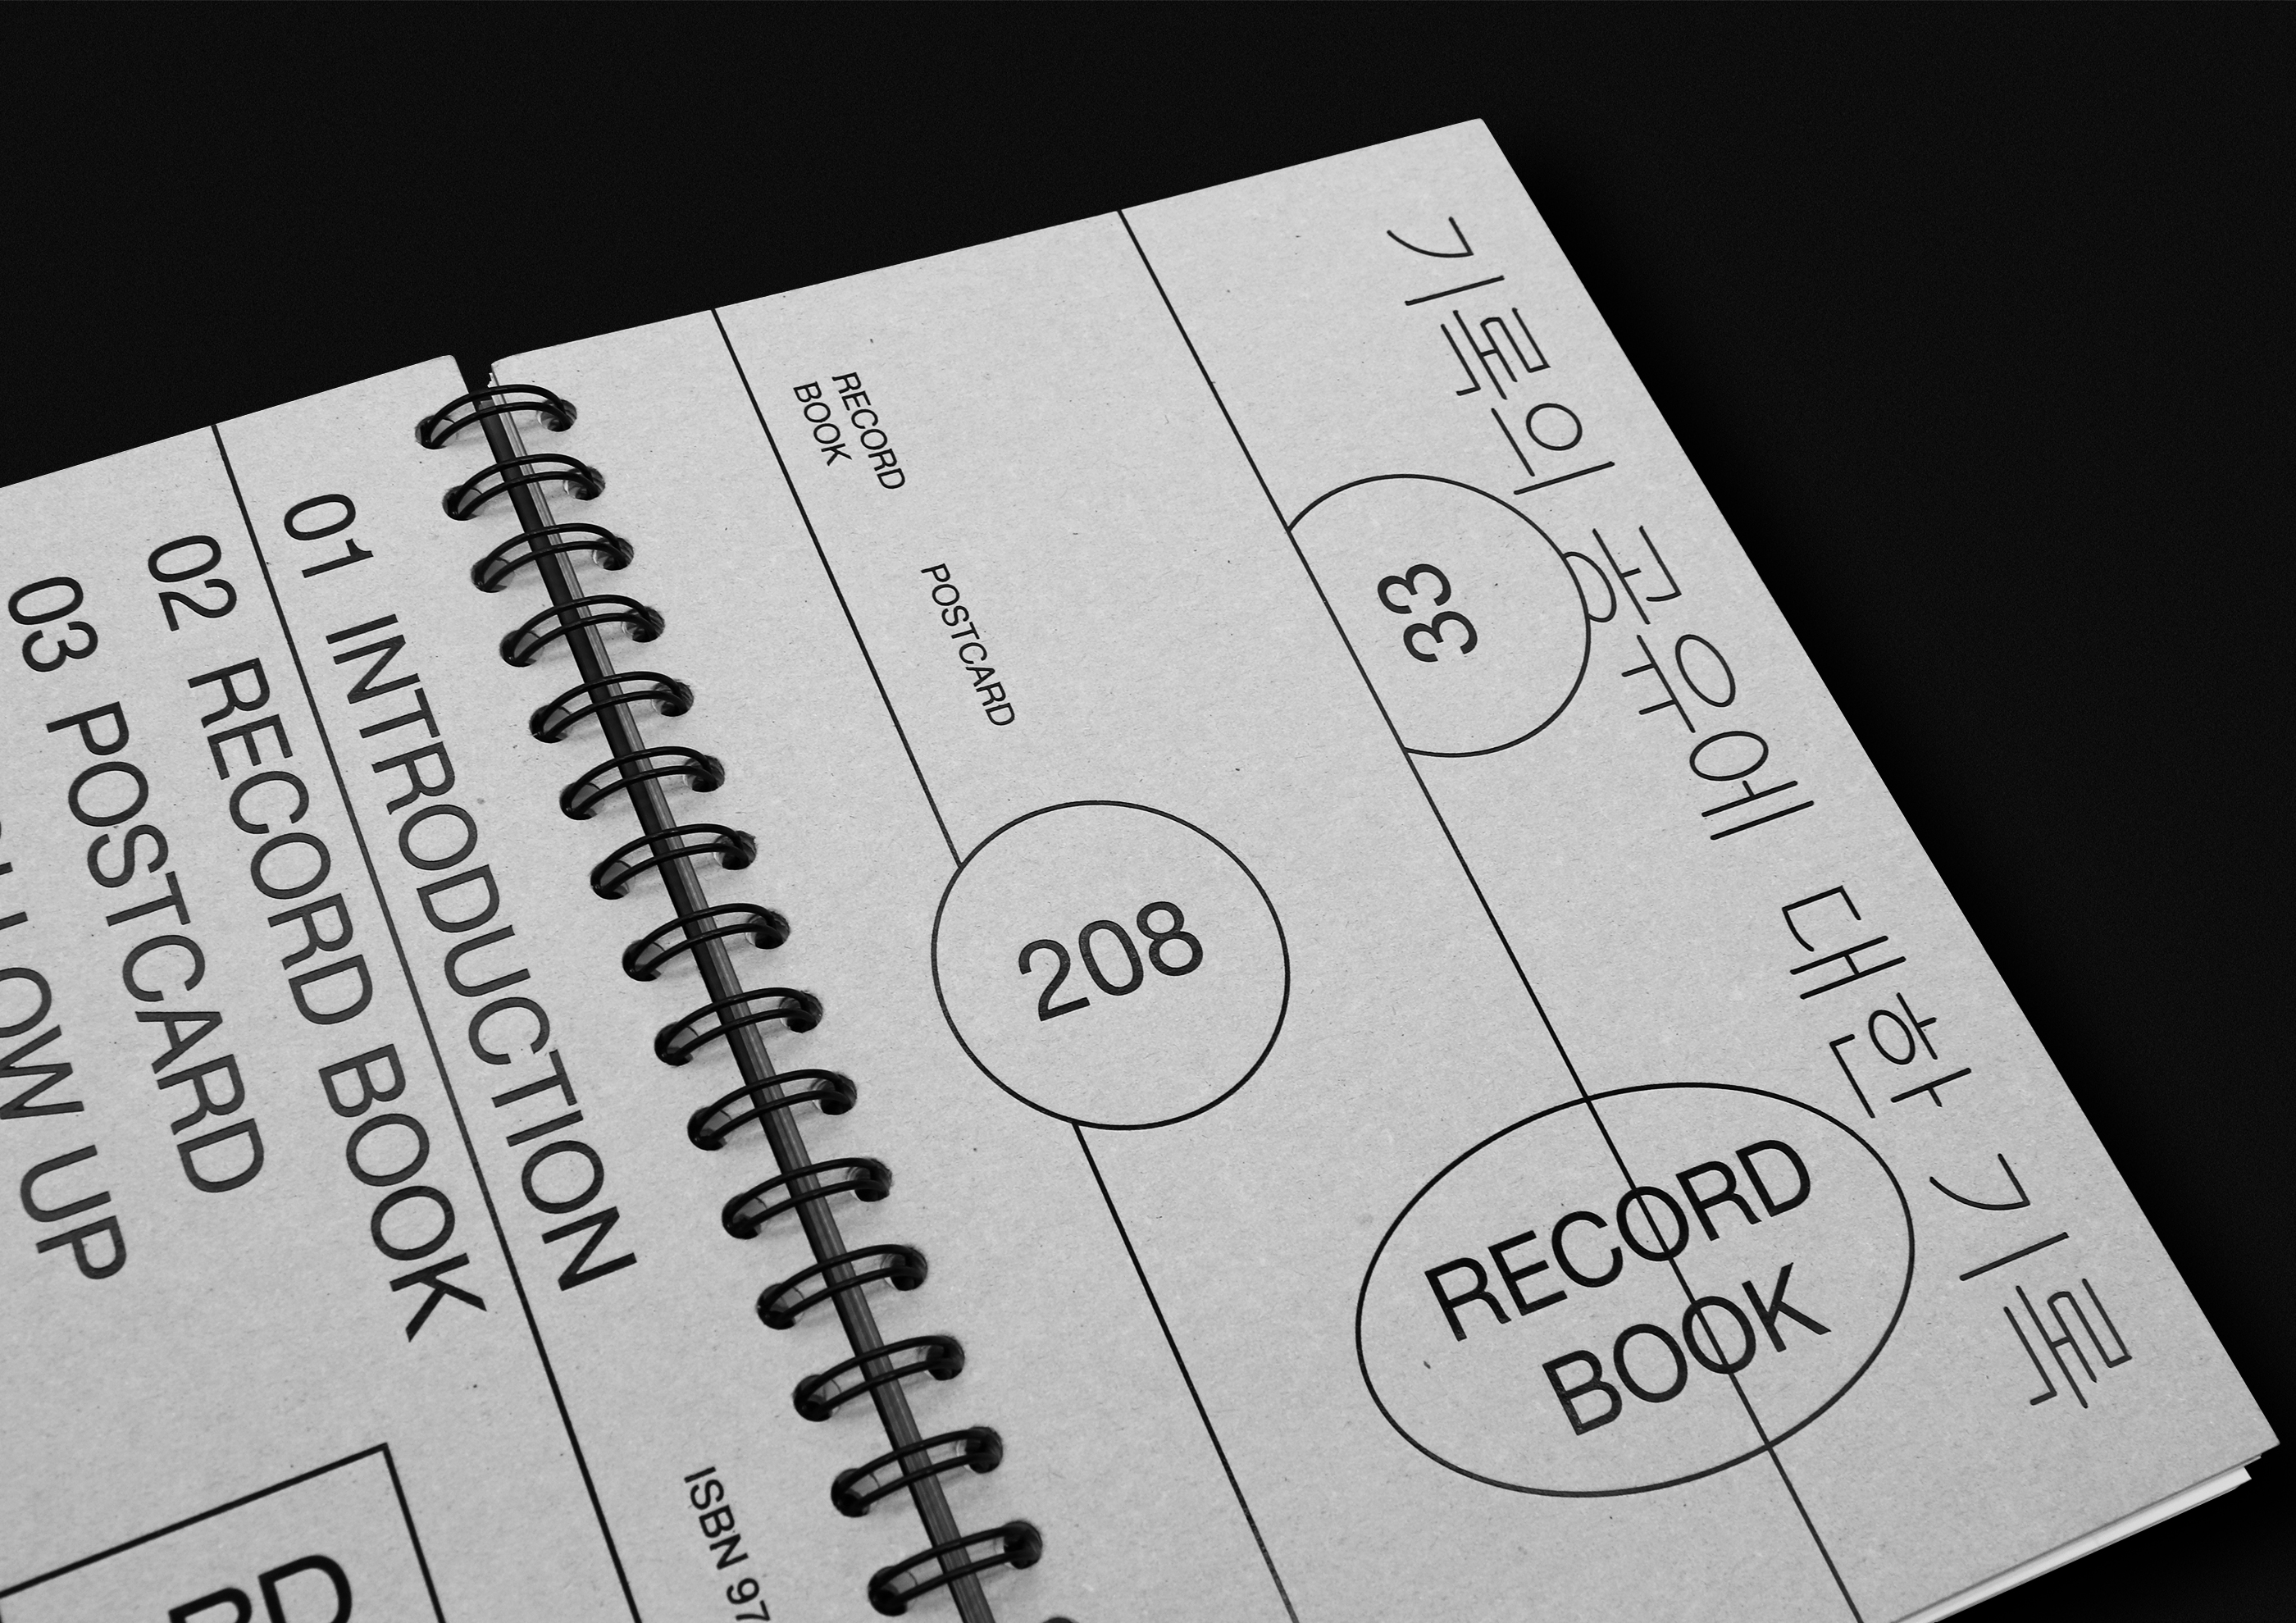 01 INTRODUCTION
02 RECORD BOOK
03 POSTCARD
LOW UP
ISBN 97
RD
RECORD
BOOK
POSTCARD
208
33
RECORD
BOOK
기록의 공유에 대한 기록